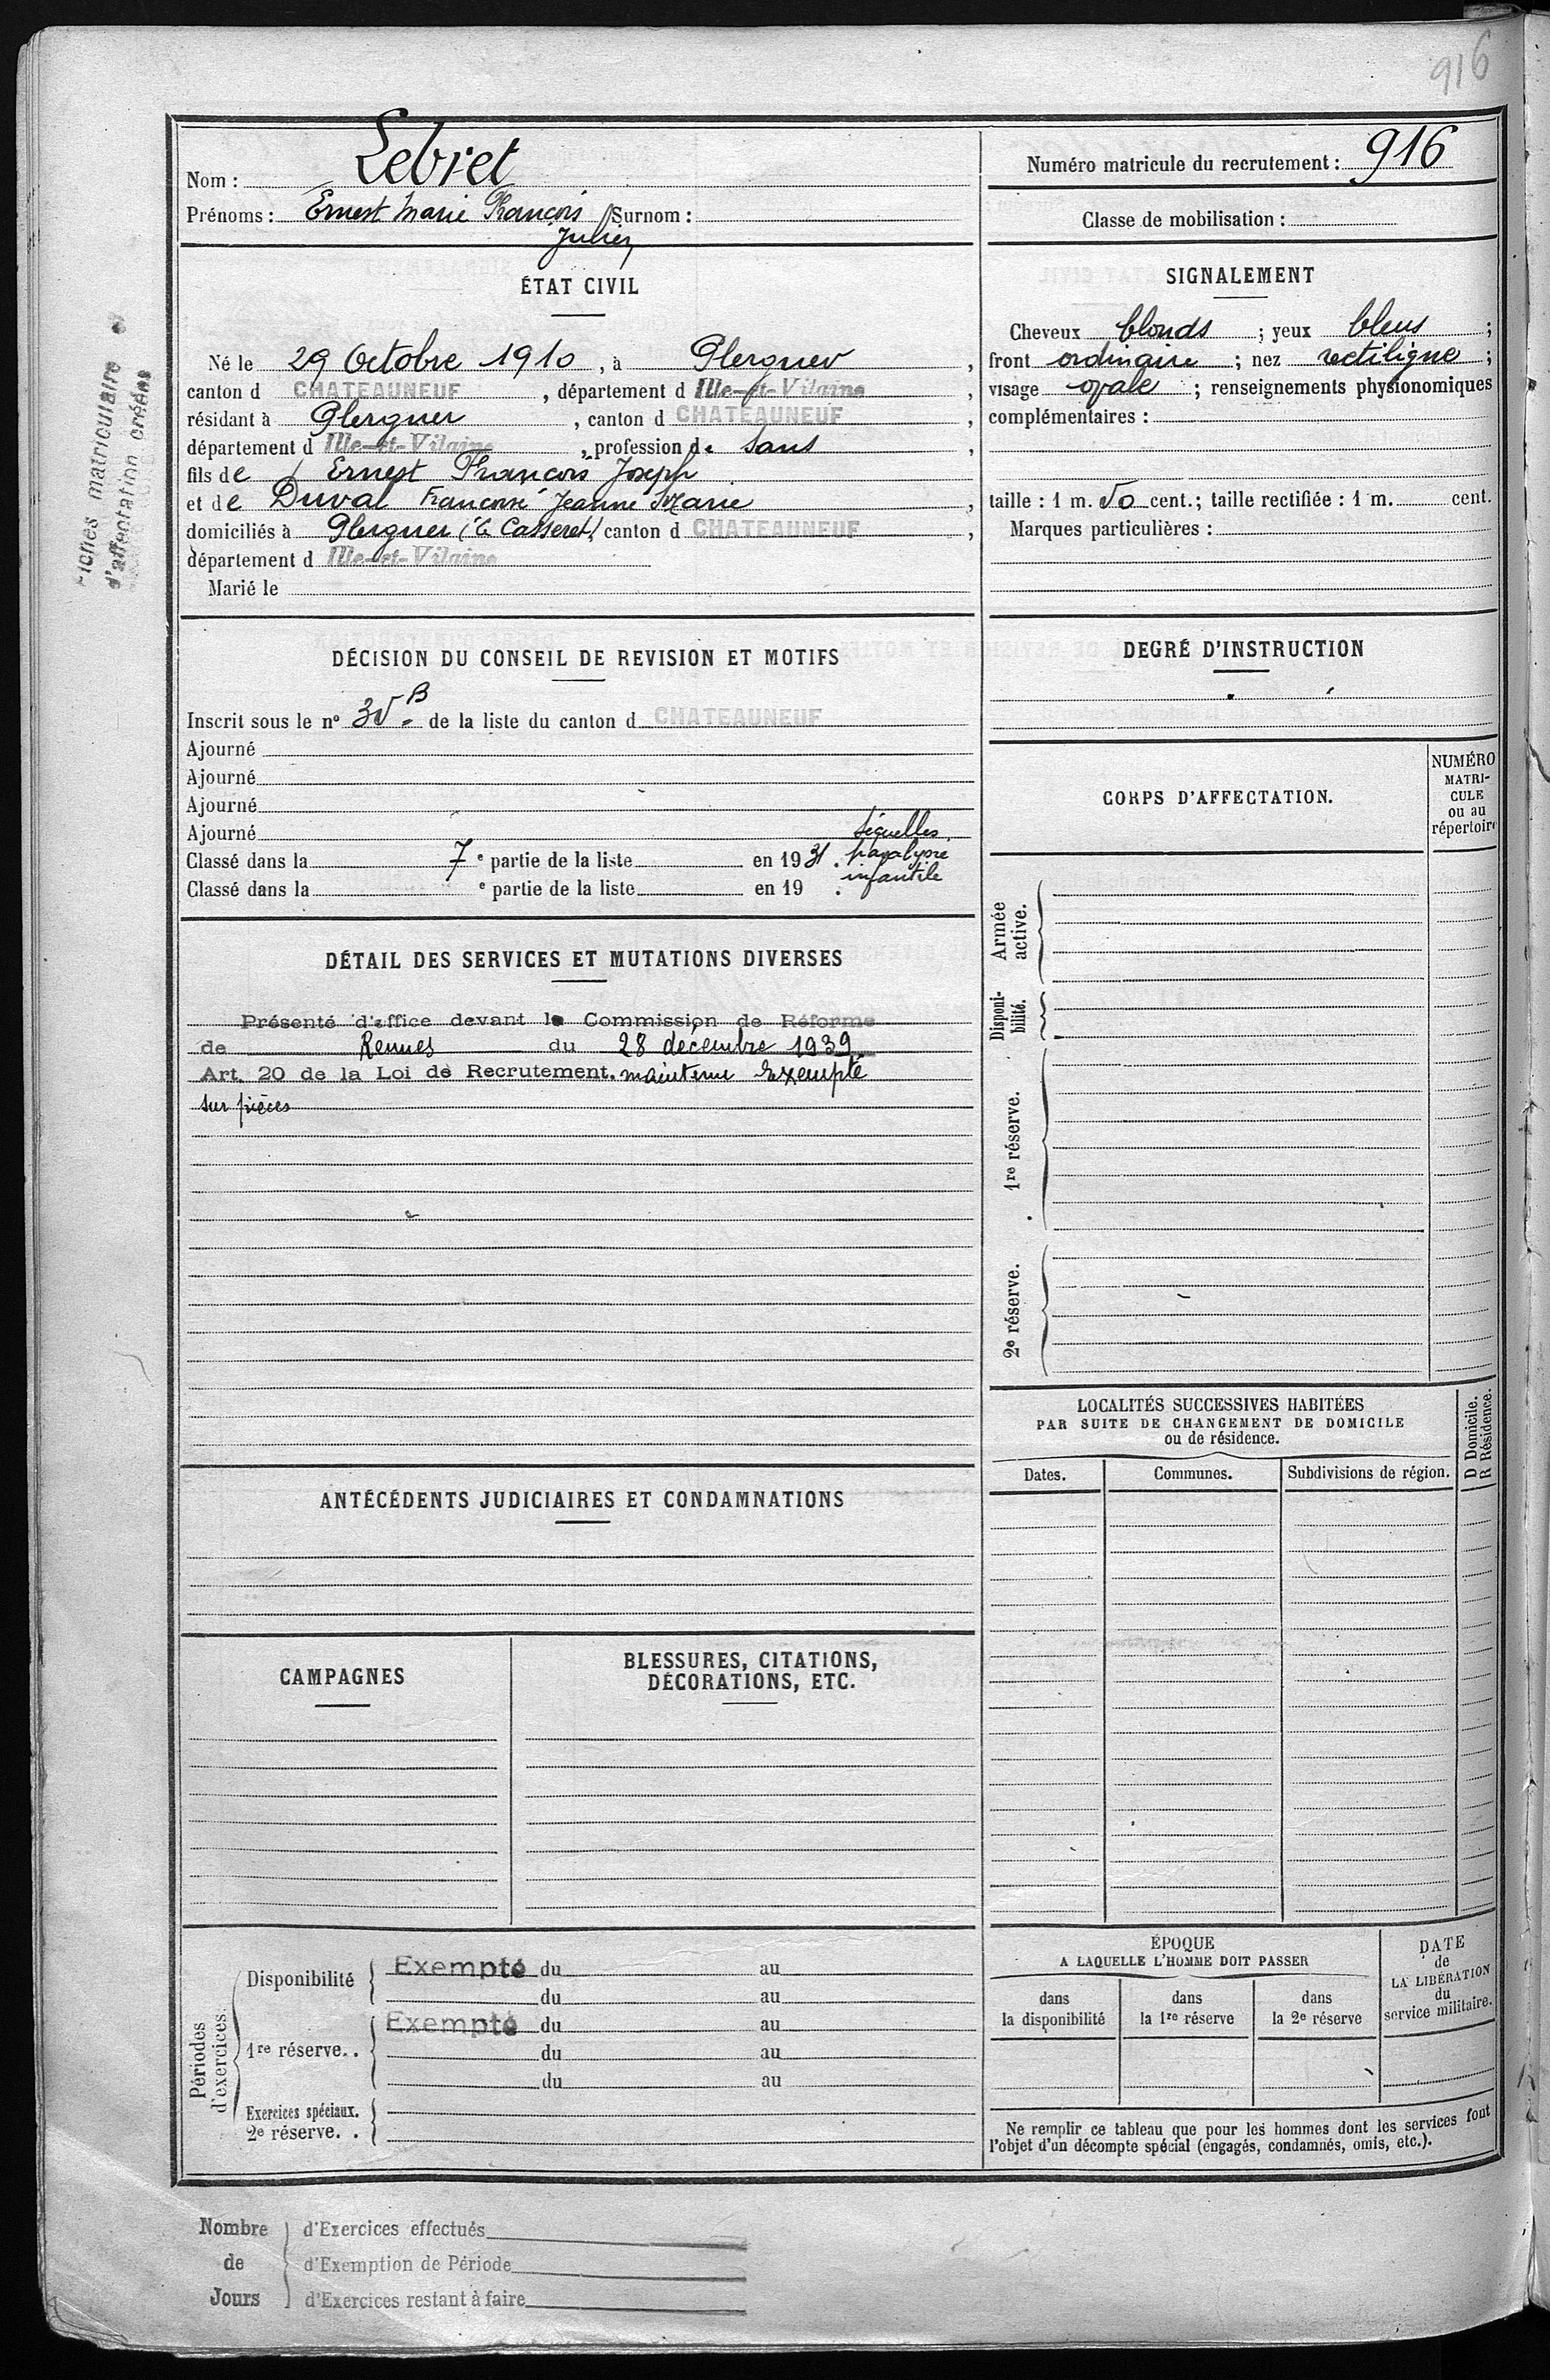 916
Fiches matriculaire et
d'affectation créées
Nom : Lebret
Prénoms : Ernest Marie François Surnom :
Julien
ÉTAT CIVIL
Né le 29 Octobre 1910, à Plerguer,
canton d CHATEAUNEUF, département d Ille-et-Vilaine,
résidant à Plerguer, canton d CHATEAUNEUF,
département d Ille-et-Vilaine, profession de Sans,
fils de Ernest François Joseph
et de Duval Françoise Jeanne Marie,
domiciliés à Plerguer (Casseret) canton d CHATEAUNEUF,
département d Ille-et-Vilaine
Marié le
DÉCISION DU CONSEIL DE REVISION ET MOTIFS
Inscrit sous le n° 35 B de la liste du canton d CHATEAUNEUF
Ajourné
Ajourné
Ajourné
Ajourné
Séquelles
Classé dans la 7e partie de la liste en 1931. paralysie
infantile
Classé dans la e partie de la liste en 19 .
DÉTAIL DES SERVICES ET MUTATIONS DIVERSES
Présenté d'office devant la Commission de Réforme
de Rennes du 28 décembre 1939
Art. 20 de la Loi de Recrutement. maintenu Exempté
sur pièces
ANTÉCÉDENTS JUDICIAIRES ET CONDAMNATIONS
CAMPAGNES
BLESSURES, CITATIONS,
DÉCORATIONS, ETC.
Périodes
d'exercices.
Disponibilité Exempté du au
du au
1re réserve.. Exempté du au
du au
du au
Exercices spéciaux.
2e réserve. .
Nombre
de
Jours
d'Exercices effectués
d'Exemption de Période
d'Exercices restant à faire
Numéro matricule du recrutement : 916
Classe de mobilisation :
SIGNALEMENT
Cheveux blonds ; yeux bleus ;
front ordinaire ; nez rectiligne ;
visage ovale ; renseignements physionomiques
complémentaires :
taille : 1 m. 50 cent.; taille rectifiée : 1 m. cent.
Marques particulières :
DEGRÉ D'INSTRUCTION
CORPS D'AFFECTATION.
NUMÉRO
MATRI-
CULE
ou au
répertoire
Armée
active.
Disponi-
bilité.
1re réserve.
2e réserve.
LOCALITÉS SUCCESSIVES HABITÉES
PAR SUITE DE CHANGEMENT DE DOMICILE
ou de résidence.
D Domicile.
R Résidence.
Dates. Communes. Subdivisions de région.
ÉPOQUE
A LAQUELLE L'HOMME DOIT PASSER
dans
la disponibilité
dans
la 1re réserve
dans
la 2e réserve
DATE
de
LA LIBÉRATION
du
service militaire.
Ne remplir ce tableau que pour les hommes dont les services font
l'objet d'un décompte spécial (engagés, condamnés, omis, etc.).